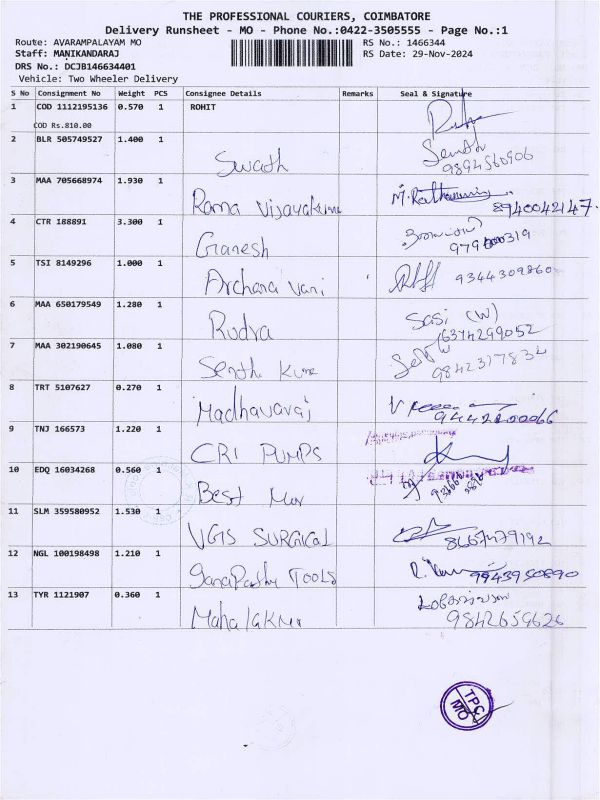 THE PROFESSIONAL COURIERS, COIMBATORE
Delivery Runsheet - MO - Phone No.:0422-3505555 - Page No.:1
Route: AVARAMPALAYAM MO RS No.: 1466344
Staff: MANIKANDARAJ RS Date: 29-Nov-2024
DRS No.: DCJB146634401
Vehicle: Two Wheeler Delivery
S No Consignment No Weight PCS Consignee Details Remarks Seal & Signature
1 COD 1112195136 0.570 1 ROHIT
COD Rs.810.00
2 BLR 505749527 1.400 1
Swath Senth
9894560906
3 MAA 705668974 1.930 1
Rama Vijayakume 8940042147.
4 CTR 188891 3.300 1
Ganesh
5 TSI 8149296 1.000 1
Archana Vani 9344309860
6 MAA 650179549 1.280 1
Rudra Sasi (W)
6374299052
7 MAA 302190645 1.080 1
Senthi Kume 9842317834
8 TRT 5107627 0.270 1
Madhavaraj
9 TNJ 166573 1.220 1
CRI PUMPS
10 EDQ 16034268 0.560 1
Best
11 SLM 359580952 1.530 1
VGIS SURGICAL 8667479192
12 NGL 100198498 1.210 1
Ganapathy TOOLS 9943950890
13 TYR 1121907 0.360 1
Mahalakmi 9842659626
TPC
MO